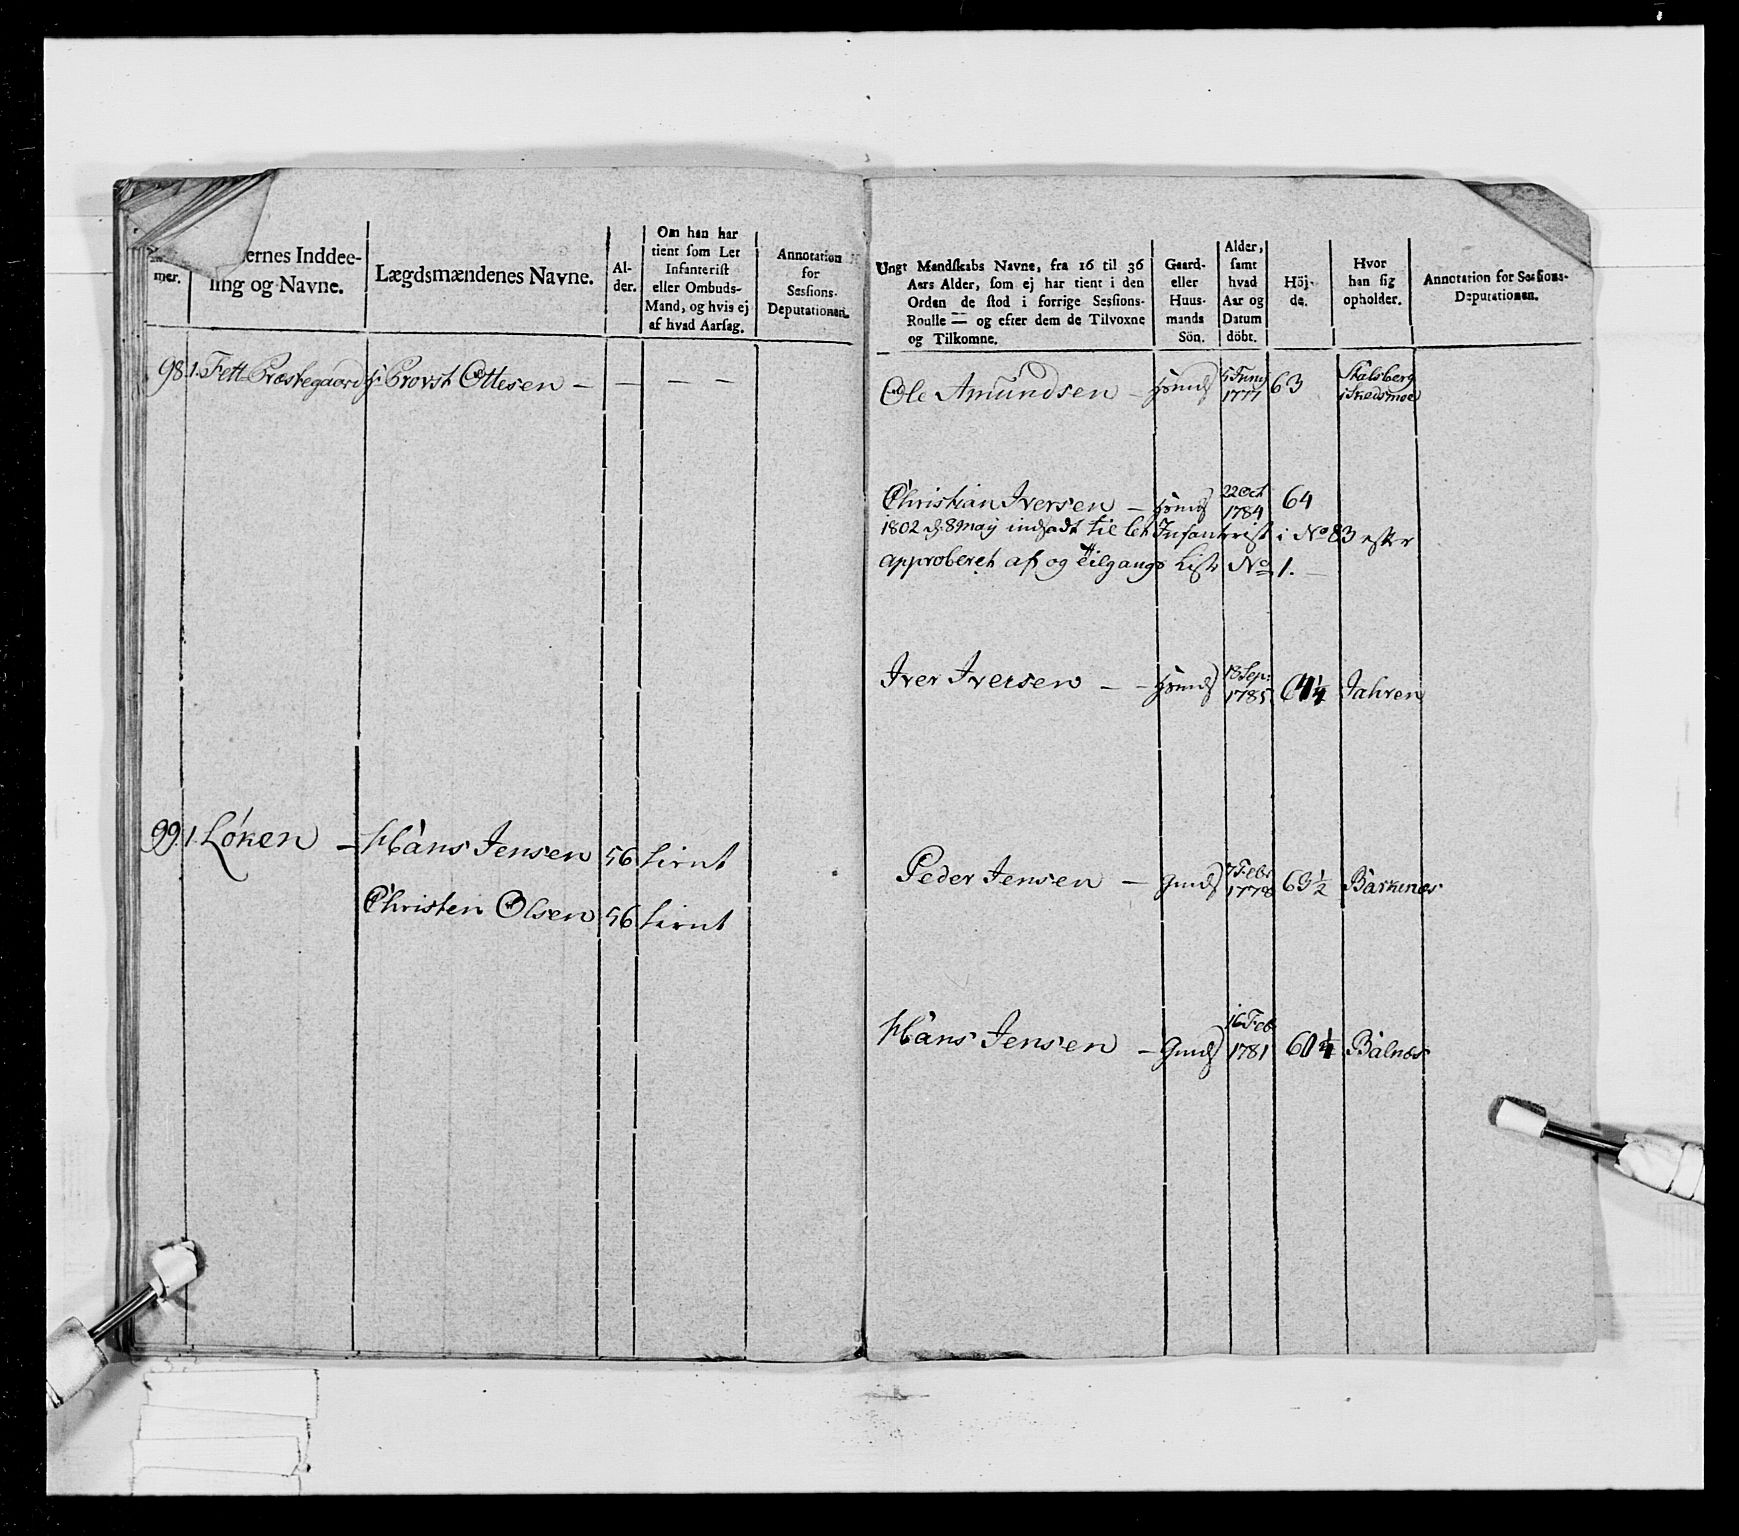 mer.
ernes Inddee-
ling og Navne.
Lægdsmændenes Navne.
Al-
der.
Om han har
tient som Let
Infanterist
eller Ombuds-
Mand, og hvis ej
af hvad Aarsag.
Annotation
for
Sessions-
Deputationen.
98. 1. Fett Præstegaard Hr Provst Ottesen — — — —
99. 1. Løken — Hans Jensen 56 tient
Christen Olsen 56 tient
Ungt Mandskabs Navne, fra 16 til 36
Aars Alder, som ej har tient i den
Orden de stod i forrige Sessions-
Roulle — og efter dem de Tilvoxne
og Tilkomne.
Gaard-
eller
Huus-
mands
Sön.
Alder,
samt
hvad
Aar og
Datum
döbt.
Höj-
de.
Hvor
han sig
opholder.
Annotation for Sessions-
Deputationen.
Ole Amundsen — 5 Juny 1777 63 Skalsberg
i Skedsmoe
Christian Iversen — 22 Oct 1784 64
1802 d. 8 May indsadt til let Infanterist i No 83 efter
approberet af og Tilgangs Liste No 1. —
Iver Iversen — — 18 Sep: 1785 64 1/4 Jahren
Peder Jensen — 7 Febr 1778 63 1/2 Barknæs
Hans Jensen — 16 Feb 1781 60 1/4 Balnæs